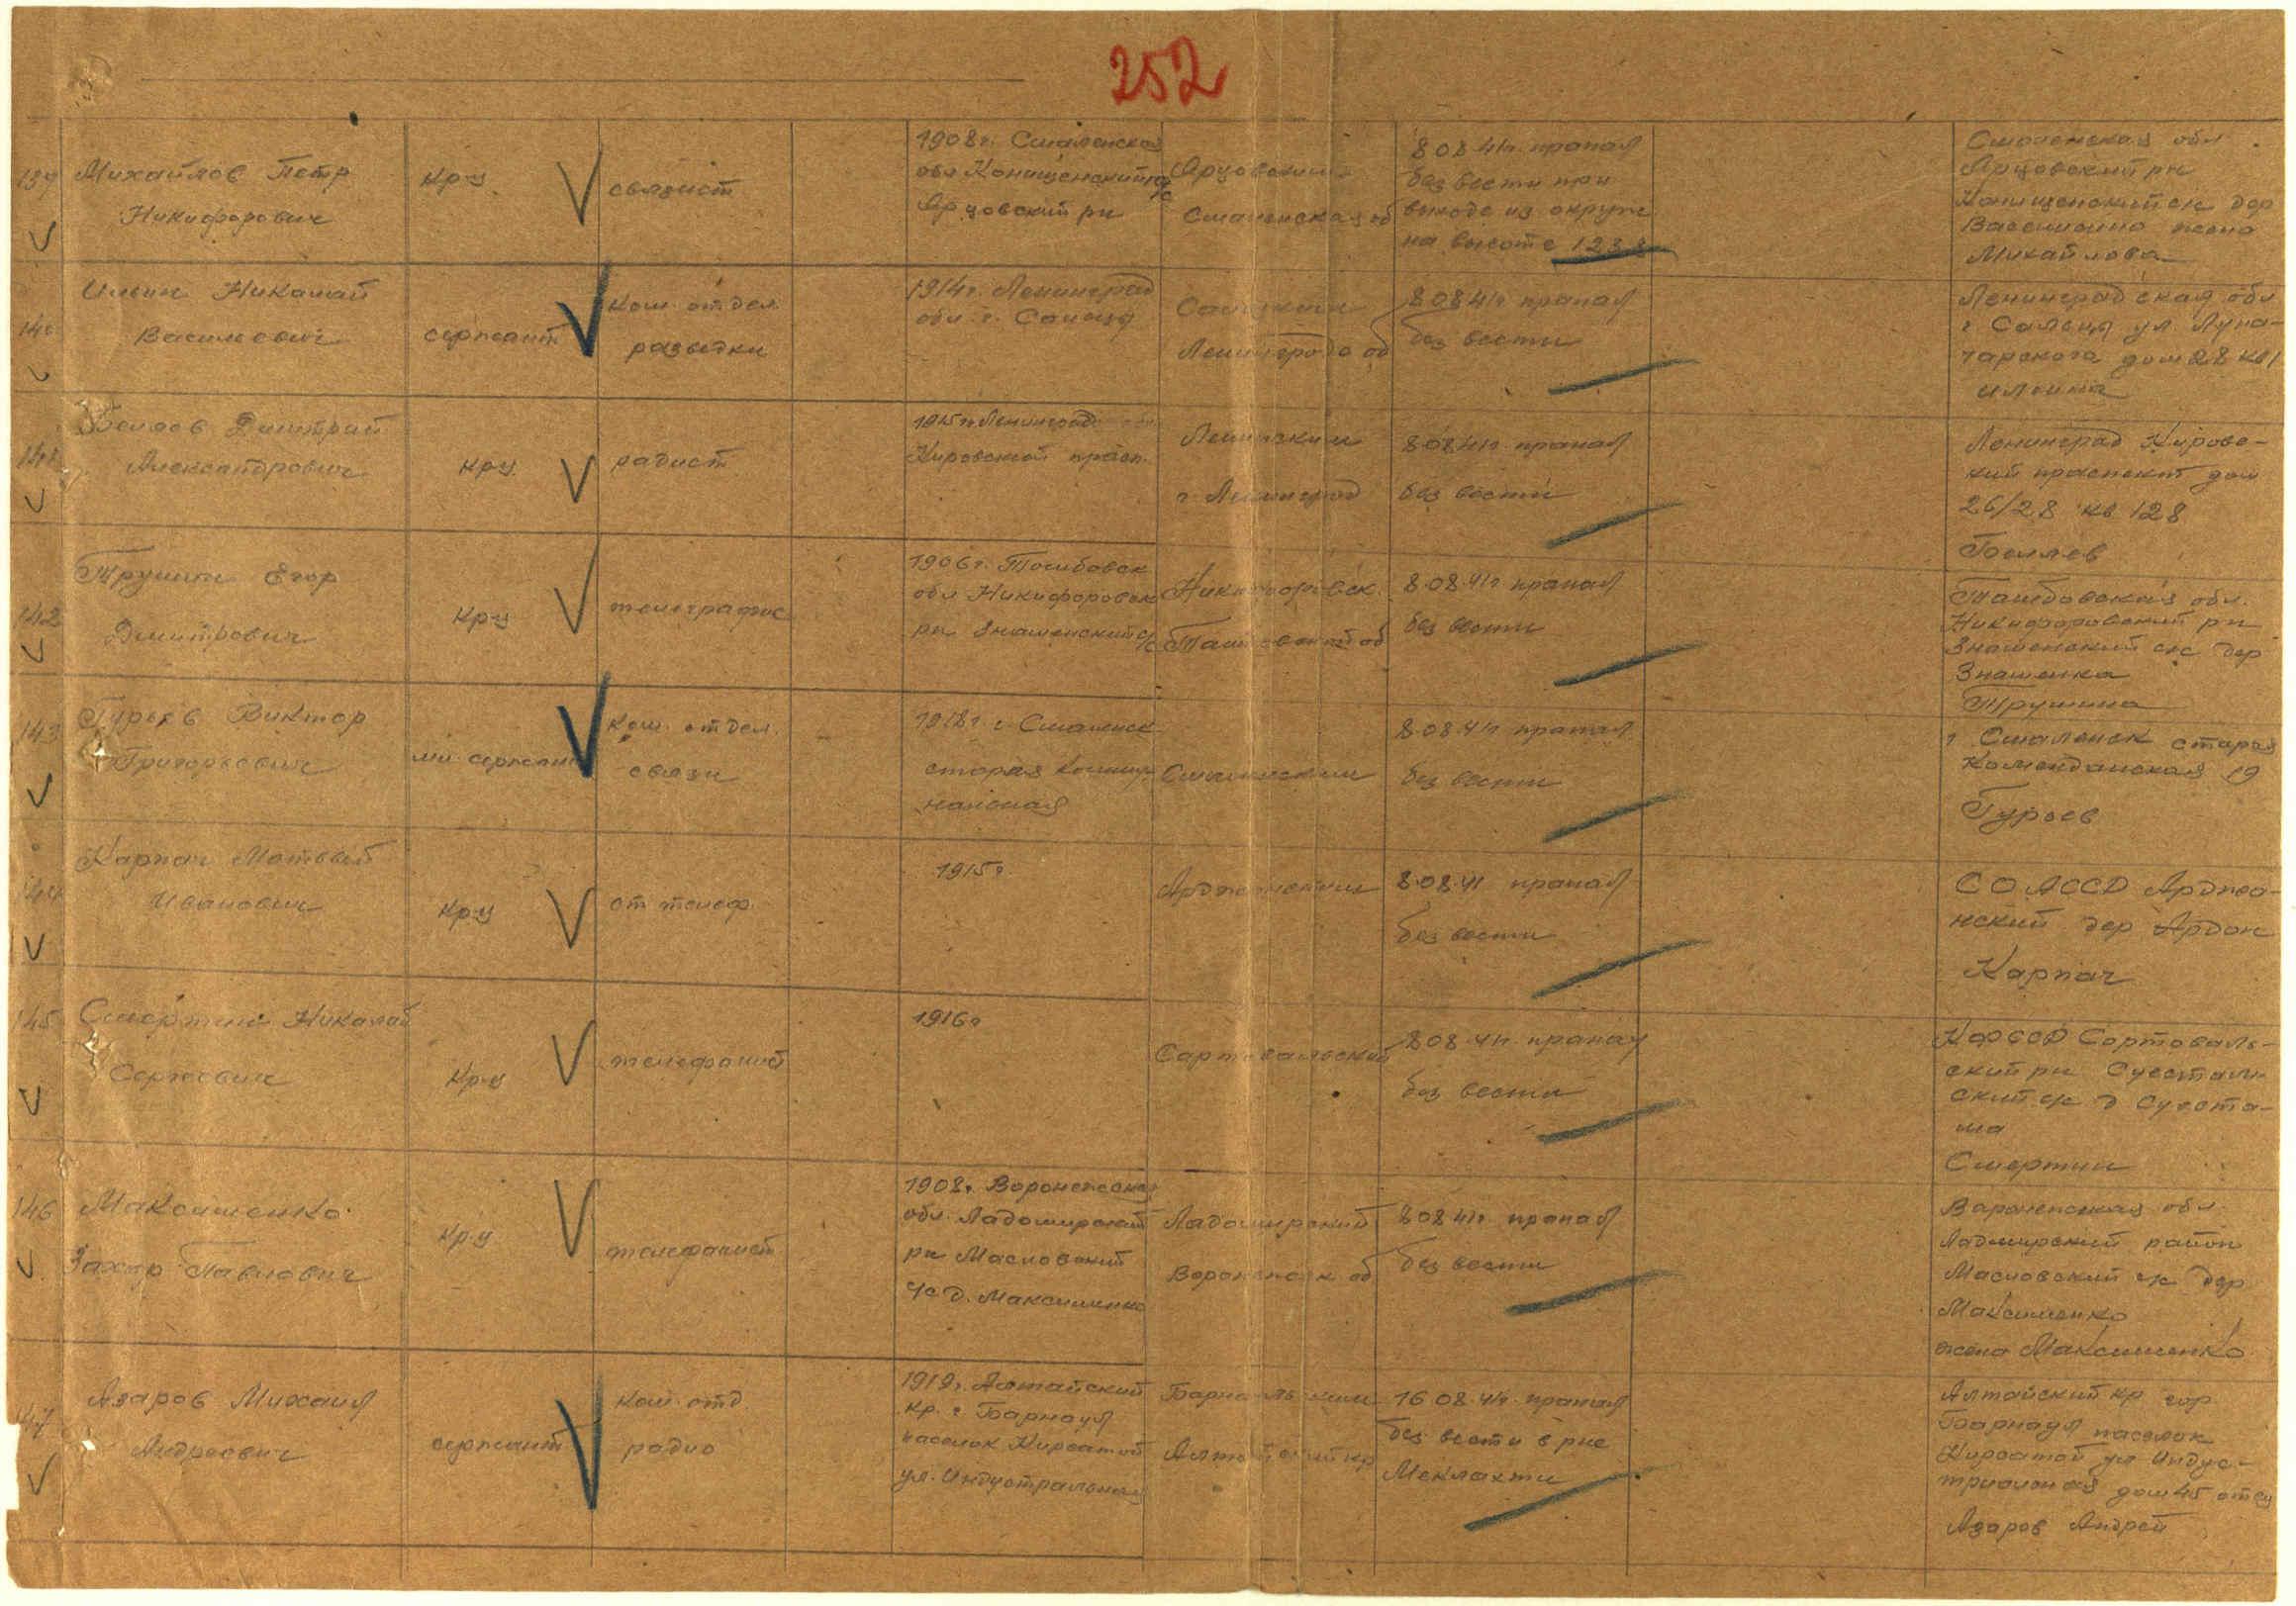 252
139
Михайлов Петр
Никифорович
кр-ц
связист
1908 г. Смоленская
обл Конищенский с/с
Ярцовский рн
Ярцовским
Смоленская об
8 08 41г. пропал
без вести при
выходе из окруж
на высоте 123,8
Смоленская обл
Ярцовский рн
Конищенский с/с дер
Михайлова
140
Ильин Николай
Васильевич
сержант
ком. отдел.
разведки
1914г. Ленинград
обл. г. Сольцы
Ленинградс об
8 08 41г пропал
без вести
Ленинградская обл
г Сольцы ул. Луна-
чарского дом 28 кв 1
Ильина
141
Беляев Дмитрий
Александрович
кр-ц.
радист
1915 г Ленинград
Кировский просп.
Ленинским
г Ленинград
8 08 41г. пропал
без вести
Ленинград Кировс-
кий проспект дом
26/28 кв 128
Беляев
142
Трушин Егор
Дмитрович
кр-ц
телеграфис
1906 г. Тамбовск
обл Никифоровск
рн Знаменский с/с
Никифоровск.
Тамбовский об
8.08.41г пропал
без вести
Тамбовская обл.
Никифоровский рн
Знаменский с/с дер
Знаменка
Трушина
143
Гурьев Виктор
Григорьевич
мл. сержант
ком. отдел.
связи
1918г. г. Смоленск
старая
Смоленским
8.08.41г пропал
без вести
г Смоленск старая
Комендантская 19
Гурьев
144
Карпач Матвей
Иванович
кр-ц
от телеф.
1915г
8.08.41 пропал
без вести
СО АССР Арджо-
нский дер Ардон
Карпач
145
Смертин Николай
Сергеевич
кр-ц
телефонист
1916г
Сартовальский
8 08 41г. пропал
без вести
КФССР Сортоваль-
ский рн Суестам-
ский с/с д Суеста-
ма
Смертин
146
Максименко
Захар Павлович
кр-ц
телефонист
1908г. Воронежская
обл. Ладомирский
рн Масловский
с/с д. Максименко
Ладомирский
Воронежск об
8 08 41г пропал
без вести
Воронежская обл.
Ладомирский район
Масловский с/с дер
Максименко
жена Максименко
147
Азаров Михаил
Андреевич
сержант
ком. отд.
радио
1919г. Алтайский
кр. г Барнаул
поселок Кирсатой
ул. Индустральная
Барнаульским
Алтайский кр
16 08 41г. пропал
без вести в р-не
Меклахти
Алтайский кр гор
Барнаул поселок
Кирсатой ул Индус-
триальная дом 45 отец
Азаров Андрей